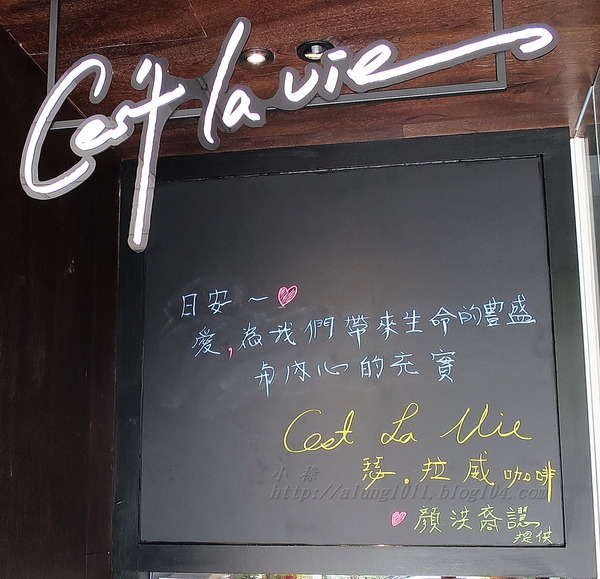 C'est la vie
日安~
愛,為我們帶來生命的豐盛
與內心的充實
Cest La Vie
瑟.拉威咖啡
小 祿
http://alung1011.blog104.com
顏洪裔
提供